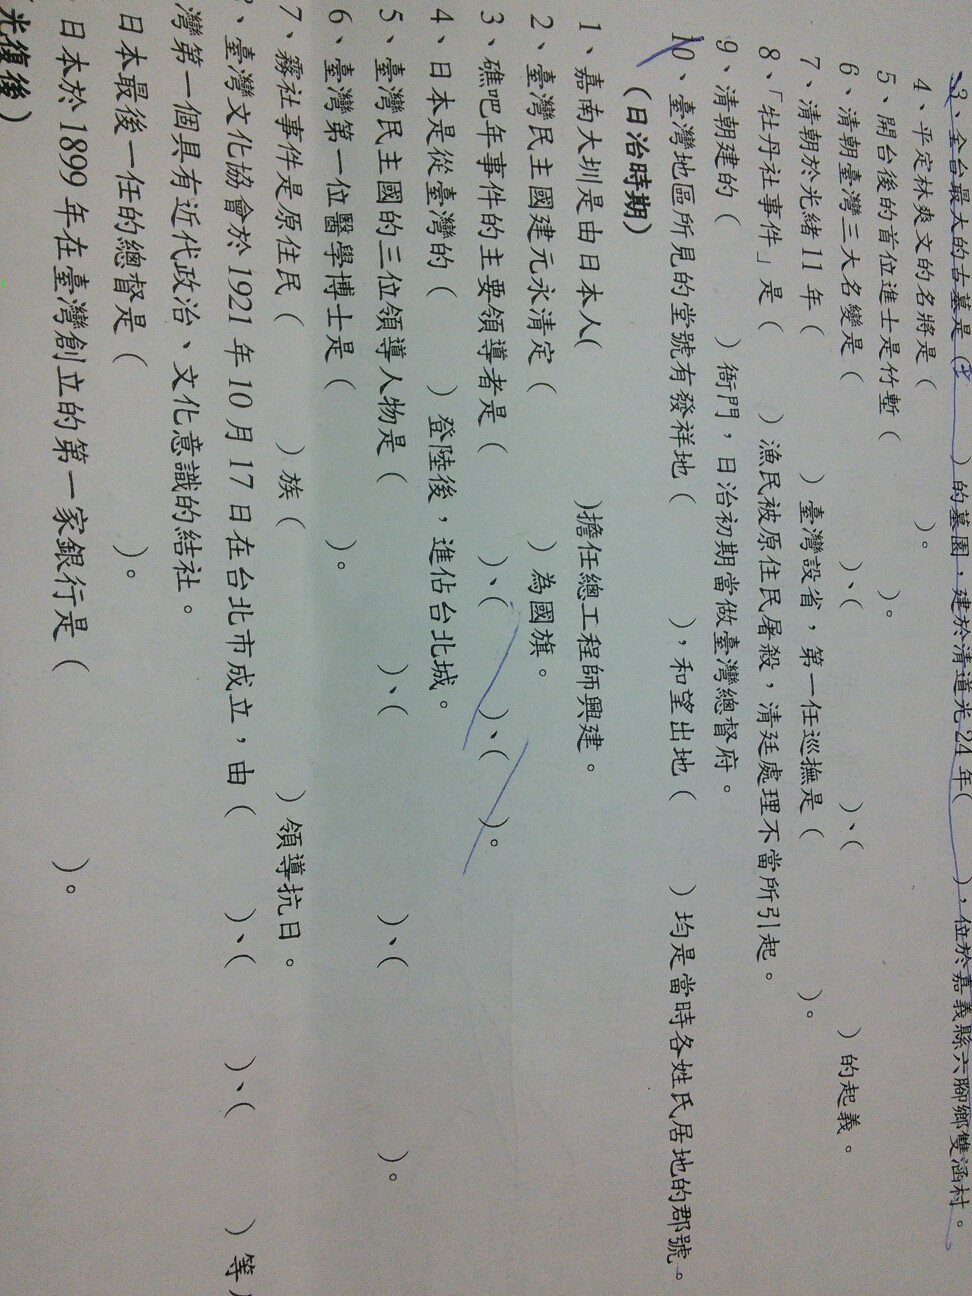 3、全台最大的古墓是(　　)的墓園，建於清道光24年(　　)，位於嘉義縣六腳鄉雙涵村。
4、平定林爽文的名將是(　　)。
5、開台後的首位進士是竹塹(　　)。
6、清朝臺灣三大名變是(　　)、(　　)、(　　)的起義。
7、清朝於光緒11年(　　)臺灣設省，第一任巡撫是(　　)。
8、「牡丹社事件」是(　　)漁民被原住民屠殺，清廷處理不當所引起。
9、清朝建的(　　)衙門，日治初期當做臺灣總督府。
10、臺灣地區所見的堂號有發祥地(　　)，和望出地(　　)均是當時各姓氏居地的郡號。
(日治時期)
1、嘉南大圳是由日本人(　　)擔任總工程師興建。
2、臺灣民主國建元永清定(　　)為國旗。
3、礁吧年事件的主要領導者是(　　)、(　　)、(　　)。
4、日本是從臺灣的(　　)登陸後，進佔台北城。
5、臺灣民主國的三位領導人物是(　　)、(　　)、(　　)。
6、臺灣第一位醫學博士是(　　)。
7、霧社事件是原住民(　　)族(　　)領導抗日。
、臺灣文化協會於1921年10月17日在台北市成立，由(　　)、(　　)、(　　)等
灣第一個具有近代政治、文化意識的結社。
日本最後一任的總督是(　　)。
日本於1899年在臺灣創立的第一家銀行是(　　)。
光復後)